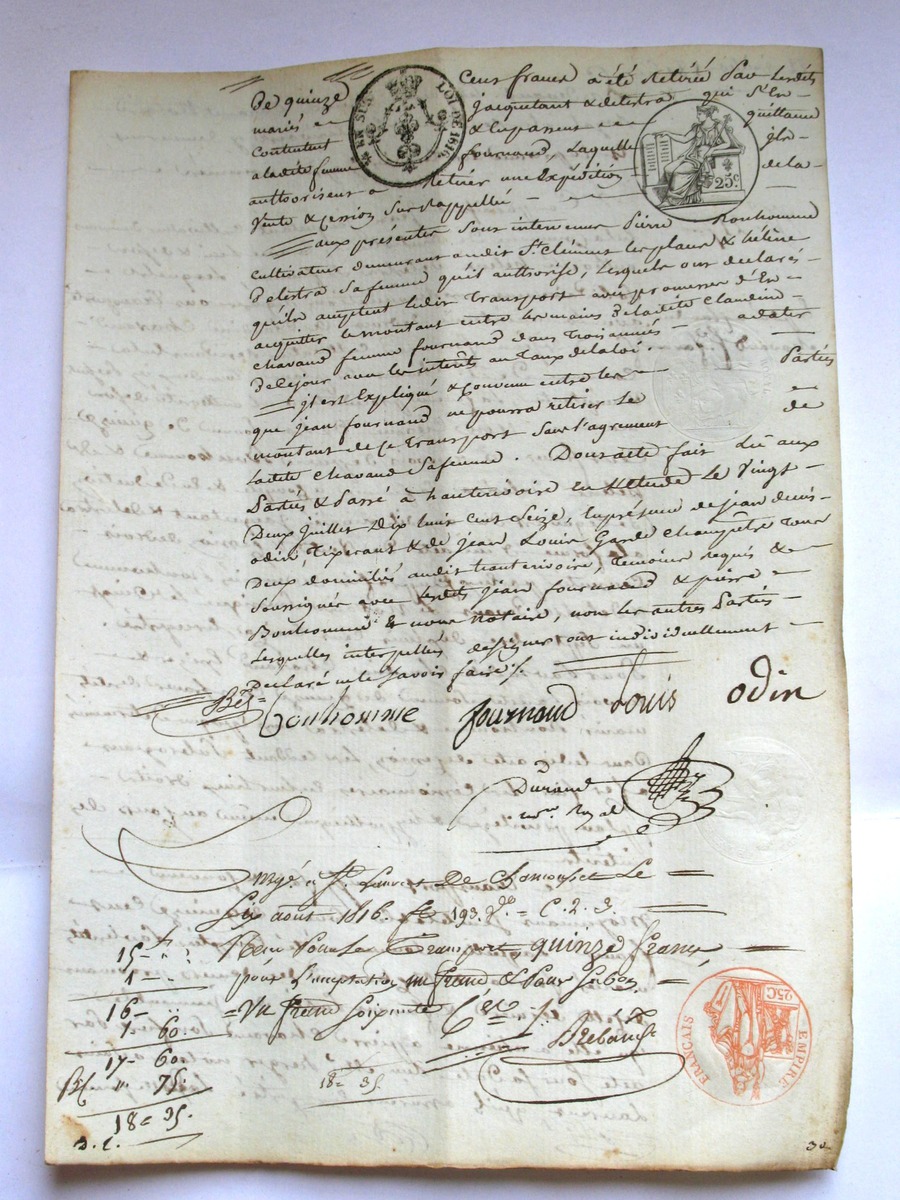 De quinze Cens francs a été Retirée Par Lesdits
mariés jacquetant & delestra qui S'En
Contentent & En passent quittance
a ladite femme fournand, Laquelle Ils
authoriseut a Retirer une Expédition de la
Vente & Cession Sur Rappellée
LOI DE 1816
25c
aux présentes Sont intervenus Pierre Bonhomme
Cultivateur demeurant audit St. Clément les places & hélène
Delestra Sa femme qu'il authorise, lesquels ont déclarés
qu'ils acceptent ledit Transport avec promesse d'En
acquitter le montant entre les mains De ladite Claudine
Chavand femme fournand dans Trois années a dater
De Ce jour avec les intérêts au Taux de la loi.
il est Expliqué & Convenu entre les Parties
que jean fournand ne pourra retirer Le
montant de Ce Transport Sans l'agrément de
Ladite Chavand Sa femme. Dont acte fait Lû aux
Parties & Passé à hauterivoire En L'Etude Le Vingt
Deux juillet Dix huit Cent Seize, En présence de jean denis
odin, Tisserant & de jean Louis Garde Champêtre Tous
Deux domiciliés audit hauterivoire, Témoins requis &
Soussignés avec lesdits jean fournand & pierre
Bonhomme & nous Notaire, non les autres Parties
Lesquelles interpellés de signer ont individuellement
Déclaré ne le Savoir faire ./.
bonhomme fournand Louis odin
Durand
nre. Royal
Enrgé. à St. Laurent De Chamousset Le
Six août 1816. fo 193. Ro = C. 2. 3.
15 - " Reçu Pour Le Transport quinze francs
1 - " pour l'acceptation un franc & Pour Subon
16 - " = Un franc Soixante Ces
1. 60.
17 - 60
75.
18 = 35.
18 = 35
EMPIRE FRANÇAIS
25C